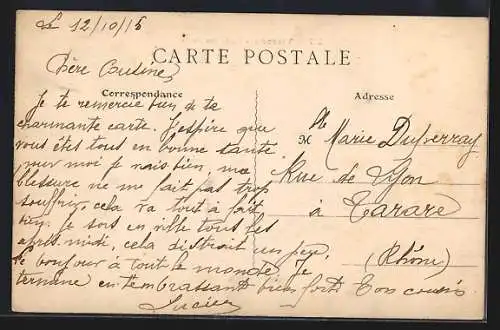 Le 12/10/15
CARTE POSTALE
Chère Cousine
Correspondance
Adresse
Je te remercie bien de ta
charmante carte. J'espère que
vous êtes tous en bonne santé
pour moi je vais bien, ma
blessure ne me fait pas trop
souffrir, cela va tout à fait
bien. Je sors en ville tous les
après-midi, cela distrait un peu.
le bonjour à tout le monde. Je
termine en t'embrassant bien fort. Ton cousin
Lucien
M lle Marie
Rue de Lyon
à Tarare
(Rhône)